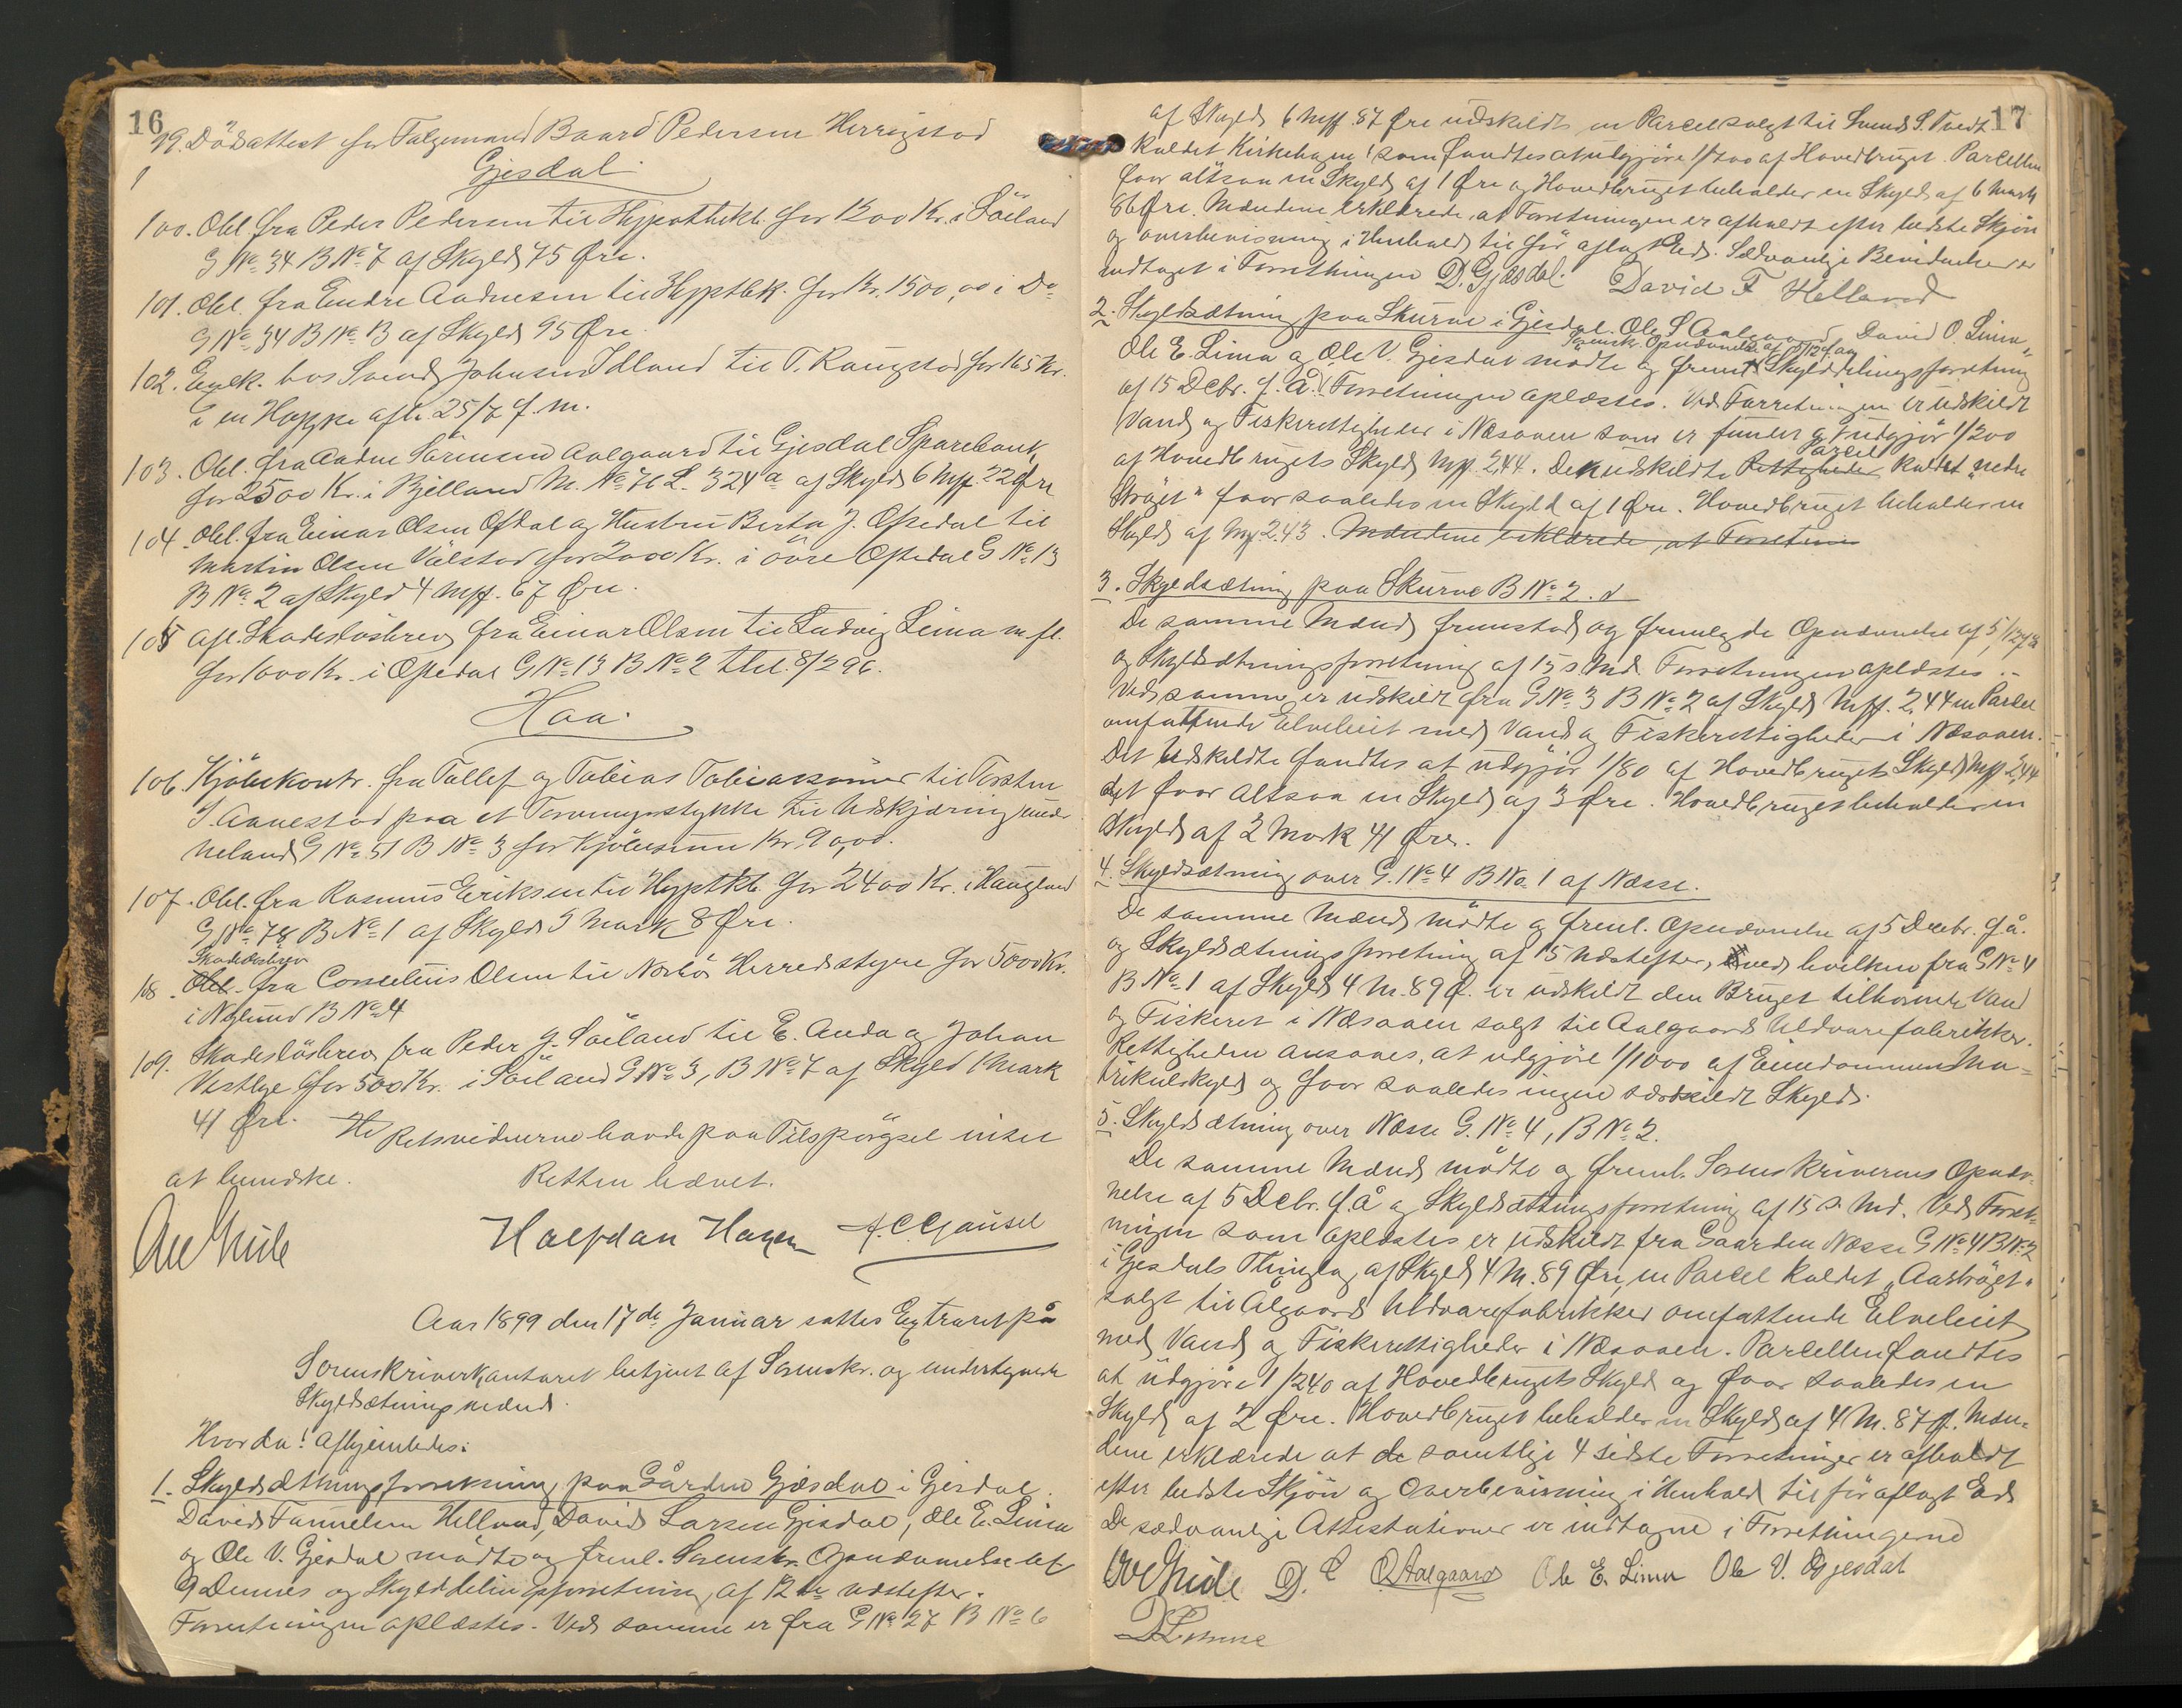 16
99. Dödsattest for Falgemand Baard Pedersen Herrigstad
Gjesdal
100. Obl. fra Peder Pedersen til Hypothekb. for 1200 Kr. i Söiland
G No 34 B No 7 af Skyld 75 Øre.
101. Obl. fra Endre Aadnesen til Hyptbk. for Kr. 1500,00 i Do
G No 34 B No 13 af Skyld 95 Øre.
102. Exek. hos Svend Johnsen Idland til T. Raugstad for 165 Kr.
i en Hoppe afh. 25/7 f. m.
103. Obl. fra Aadne Sörensen Aalgaard til Gjesdal Sparebank
for 2500 Kr. i Bjelland M. No 76 L. 324a af Skyld 6 Mrk 22 Øre
104. Obl. fra Einar Olsen Opdal og Hustru Berta J. Opedal til
Martin Olsen Valstad for 2000 Kr. i övre Opedal G No 13
B No 2 af Skyld 4 Mrk. 67 Øre.
105 afl. Skadeslösbrev fra Einar Olsen til Ludvig Lima m. fl.
for 1000 Kr. i Opedal G No 13 B No 2 thl. 8/2 96.
Haa.
106. Kjöbekontr. fra Tollef og Tobias Tobiassönner til Torsten
T. Aanestad paa et Torvmyrstykke til Udskjæring under
Neland G No 51 B No 3 for Kjöbesum Kr. 90,00.
107. Obl. fra Rasmus Eriksen til Hyptkb. for 2400 Kr. i Haugland
G No 78 B No 1 af Skyld 3 Mark 8 Øre.
Skadesbrev
108. Obl. fra Cornelius Olsen til Nærbö Herredsstyre for 5000 Kr.
i Nylund B No 4
109. Skadeslösbrev fra Peder G. Söiland til E. Anda og Johan
Vestlye for 500 Kr. i Söiland G No 3, B No 7 af Skyld 1 Mark
41 Øre. Retsvidnerne havde paa Tilspörgsel intet
at bemærke. Retten hævet.
Halfdan Hagen A. C. Gausel
Aar 1899 den 17de Januar sattes Extraret på
Sorenskriverkontoret betjent af Sorenskr. og undertegnede
Skyldsætningsmænd.
Hvorda! Afhjemledes:
1. Skyldsætningsforretning paa Gården Gjesdal i Gjesdal.
David Tannelsen Helland, David Larsen Gjesdal, Ole E. Lima
og Ole V. Gjesdal mödte og freml. Sorenskr. Opnævnelse af
9 Dennes og Skylddelingsforretning af 12te næstefter.
Forretningen oplæstes. Ved samme er fra G No 27 B No 6
17
af Skyld 6 Mrk 87 Øre udskildt en Parcel solgt til Svend S. Tvedt
kaldet Kirkehagen som fandtes at udgjöre 1/700 af Hovedbruget. Parcellen
faar altsaa en Skyld af 1 Øre og Hovedbruget beholder en Skyld af 6 Mark
86 Øre. Mændene erklærede, at Forretningen er afholdt efter bedste Skjön
og overbevisning i Henhold til för aflagt Ed. Sædvanlig Bevidnelse er
indtaget i Forretningen D. Gjesdal. David T Helland
2. Skyldsætning paa Skurve i Gjesdal. Ole S. Aalgaard David O. Lima,
Ole E. Lima og Ole V. Gjesdal mödte og freml. Skylddelingsforretning
Sorenskr. Opnævnelse af 5/12 f. a. og
af 15 Decbr. f. Å. Forretningen oplæstes. Ved Forretningen er udskildt
Vand og Fiskerettigheder i Næsaaen som er funden at udgjör 1/200
Parcel
af Hovedbrugets Skyld Mrk 2,44. Den udskildte Rettigheder kaldet „nedre
Ströget" faar saaledes en Skyld af 1 Øre. Hovedbruget beholder en
Skyld af Mrk 2.43. Mændene erklærede, at Forretnin
3. Skyldsætning paa Skurve B No 2.
De samme Mænd fremstod og fremlagde Opnævnelse af 5/12 f. a
og Skyldsætningsforretning af 15 s. Md. Forretningen oplæstes.
Ved samme er udskildt fra G No 3 B No 2 af Skyld Mrk. 2,44 en Parcel
omfattende Elveleiet med Vand og Fiskerettigheder i Næsaaen.
Det Udskildte fandtes at udgjör 1/80 af Hovedbrugets Skyld Mrk 2,44
det faar altsaa en Skyld af 3 Øre. Hovedbruget beholder en
Skyld af 2 Mark 41 Øre.
4. Skyldsætning over G. No 4 B No 1 af Næsse.
De samme Mænd mödte og freml. Opnævnelse af 5 Decbr. f. å.
og Skyldsætningsforretning af 15 Næstefter, ved hvilken fra G No 4
B No 1 af Skyld 4 M. 89 Ø. er udskildt den Bruget tilhørende Vand
og Fiskeret i Næsaaen solgt til Aalgaards Uldvarefabrikker.
Rettigheden ansaaes, at udgjöre 1/1000 af Eiendommens Ma-
trikulskyld og faar saaledes ingen særskildt Skyld.
5. Skyldsætning over Næsse G. No 4, B No 2.
De samme Mænd mödte og freml. Sorenskriverens Opnæv-
nelse af 5 Decbr. f. å og Skyldsætningsforretning af 15 s. Md. Ved Forret-
ningen som oplæstes er udskildt fra Gaarden Næsse G No 4 B No 2
i Gjesdals Thinglag, af Skyld 4 M. 89 Øre, en Parcel kaldet „Aaströget"
solgt til Ålgaards Uldvarefabrikker omfattende Elveleiet
med Vand og Fiskerettigheder i Næsaaen. Parcellen fandtes
at udgjöre 1/240 af Hovedbrugets Skyld og faar saaledes en
Skyld af 2 Øre. Hovedbruget beholder en Skyld af 4 M. 87 Ø. Mæn-
dene erklærede at de samtlige 4 sidste Forretninger er afholdt
efter bedste Skjön og Overbevisning i Henhold til för aflagt Ed
De sædvanlige Attestationer er indtagne i Forretningerne
O Aalgaard Ole E. Lima Ole V. Gjesdal